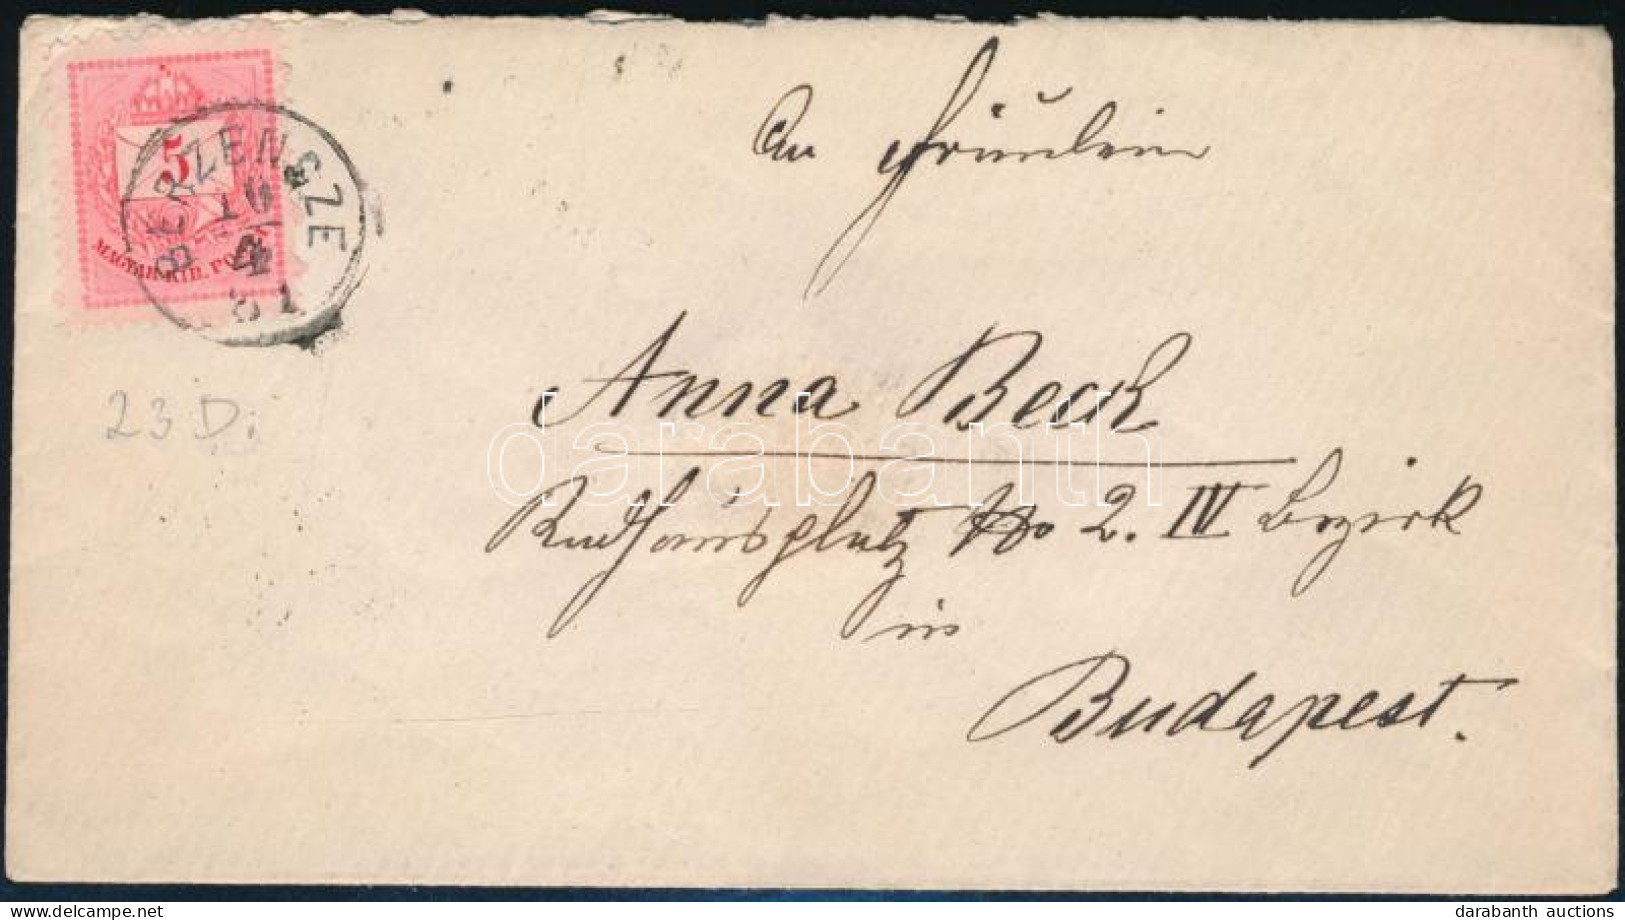 5
MAGYAR KIR. POSTA
BERZENCZE
10
4
81
An Fräulein
Anna Beck
Rathausplatz No 2. IV Bezirk
in
Budapest.
23 D.
darabanth
darabanth auctions
www.delcampe.net